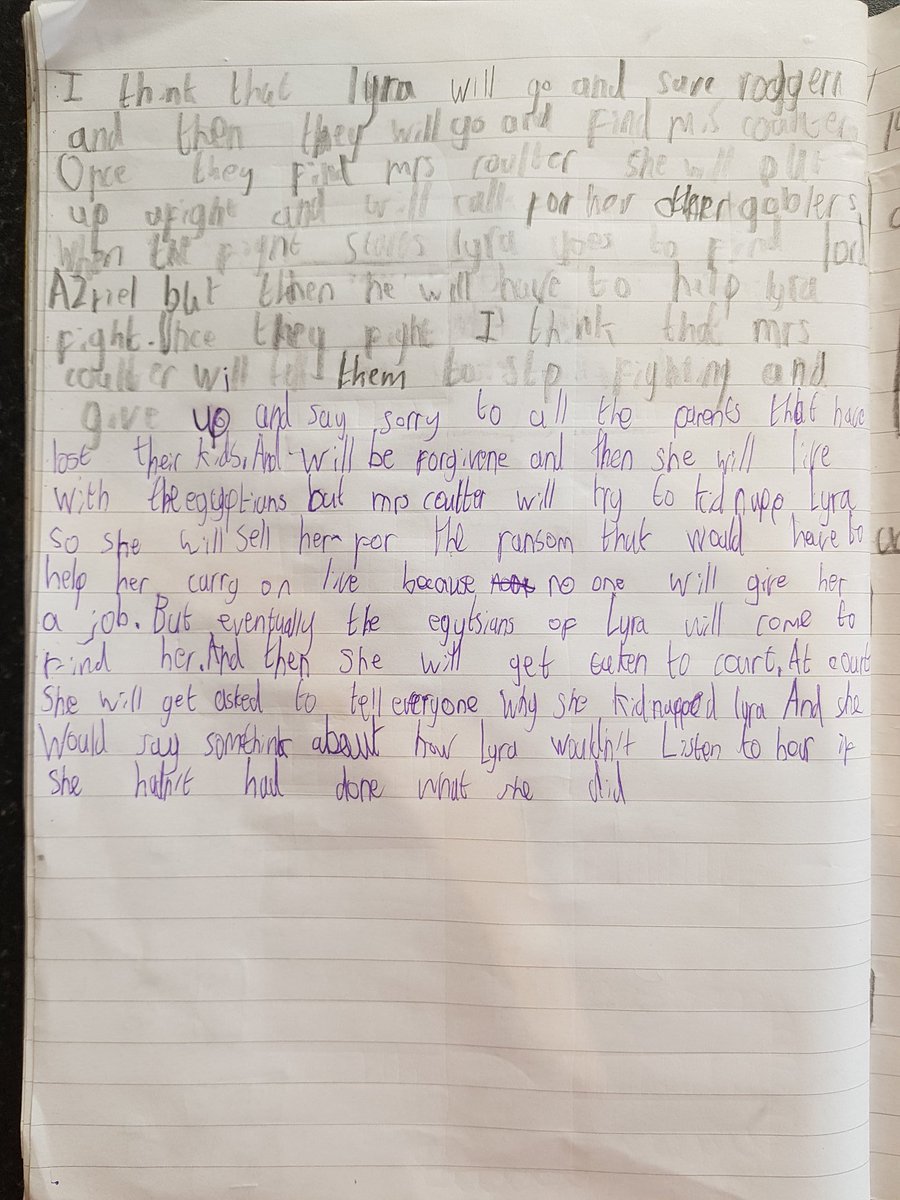 I think that lyra will go and save roddgern
and then they will go and find mrs coulter.
Once they find mrs coulter she will put
up afight and will call for her other goblers,
When the fight stars lyra goes to find lord
AZriel but then he will have to help lyra
fight. Once they fight I think that mrs
coulter will tell them to stp fighting and
give up and say sorry to all the parents that have
lost their kids, And will be forgivene and then she will live
with the egyptians but mrs coulter will try to kidnapp Lyra
so she will sell her for the ransom that would have to
help her carry on live because no one will give her
a job. But eventually the egytsians of Lyra will come to
find her. And then she will get taken to court. At court
She will get asked to tell everyone why she kidnapped lyra And she
Would say somethink about how Lyra wouldn't Listen to her if
She hatn't had done what she did